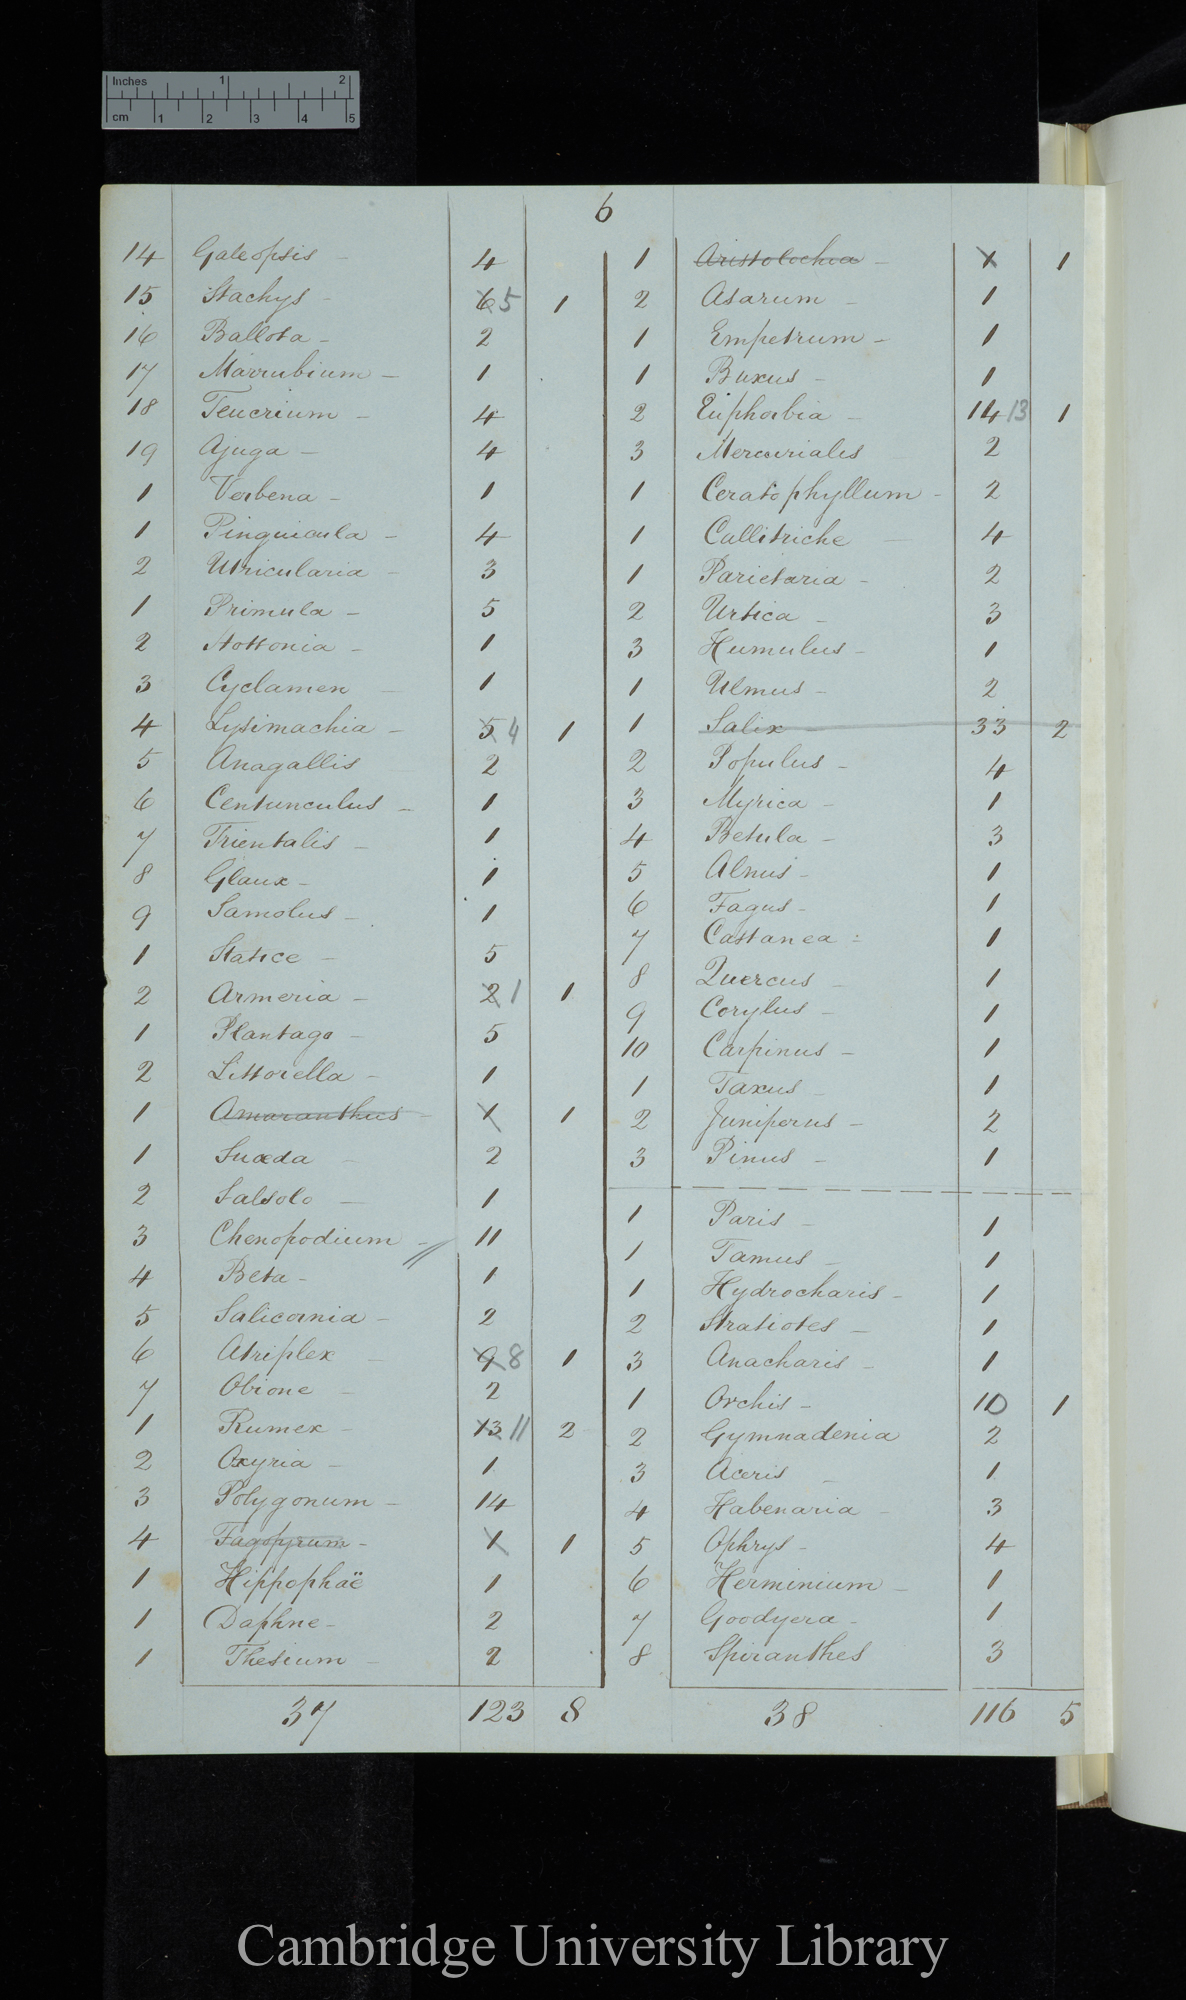 Inches 1 2
cm 1 2 3 4 5
6
14 Galeopsis – 4
15 Stachys – 6 5 1
16 Ballota – 2
17 Marrubium – 1
18 Teucrium – 4
19 Ajuga – 4
1 Verbena – 1
1 Pinguicula – 4
2 Utricularia – 3
1 Primula – 5
2 Hottonia – 1
3 Cyclamen – 1
4 Lysimachia – 5 4 1
5 Anagallis 2
6 Centunculus – 1
7 Trientalis – 1
8 Glaux – 1
9 Samolus – 1
1 Statice – 5
2 Armeria – 2 1 1
1 Plantago – 5
2 Littorella – 1
1 Amaranthus – 1 1
1 Suæda – 2
2 Salsolo – 1
3 Chenopodium – 11
4 Beta – 1
5 Salicornia – 2
6 Atriplex – 9 8 1
7 Obione – 2
1 Rumex – 13 11 2
2 Oxyria – 1
3 Polygonum – 14
4 Fagopyrum – 1 1
1 Hippophaë 1
1 Daphne – 2
1 Thesium – 2
37 123 8
1 Aristolochia – 1 1
2 Asarum – 1
1 Empetrum – 1
1 Buxus – 1
2 Euphorbia – 14 13 1
3 Mercurialis 2
1 Ceratophyllum – 2
1 Callitriche – 4
1 Parietaria – 2
2 Urtica – 3
3 Humulus – 1
1 Ulmus – 2
1 Salix – 33 2
2 Populus – 4
3 Myrica – 1
4 Betula – 3
5 Alnus – 1
6 Fagus – 1
7 Castanea – 1
8 Quercus – 1
9 Corylus – 1
10 Carpinus – 1
1 Taxus – 1
2 Juniperus – 2
3 Pinus – 1
1 Paris – 1
1 Tamus – 1
1 Hydrocharis – 1
2 Stratiotes – 1
3 Anacharis – 1
1 Orchis – 10 1
2 Gymnadenia 2
3 Aceris – 1
4 Habenaria – 3
5 Ophrys – 4
6 Herminium – 1
7 Goodyera – 1
8 Spiranthes 3
38 116 5
Cambridge University Library